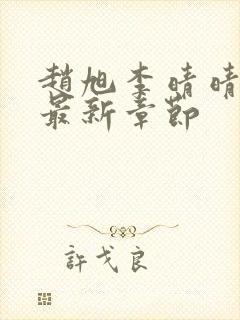 趙旭李晴晴
最新章節
許戈良